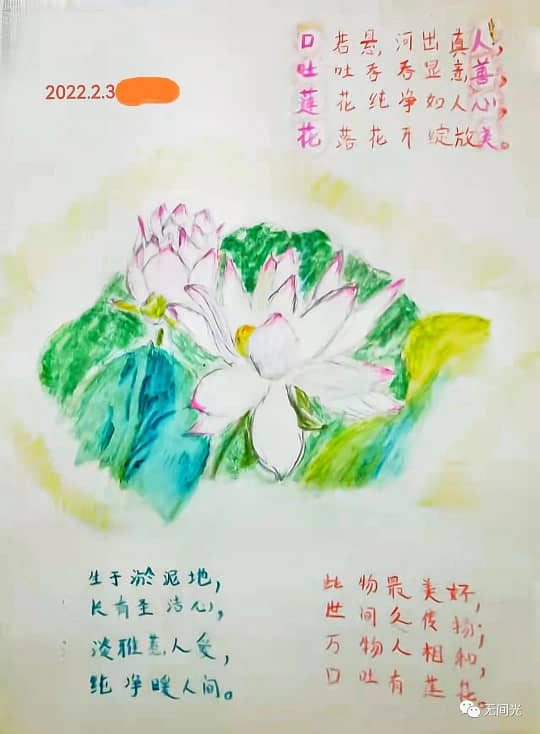 口若悬河出真人，
吐吞吞显意善，
莲花纯净如人心，
花落花开绽放美。
2022.2.3
生于淤泥地，
长有至洁心，
淡雅惹人爱，
纯净暖人间。
此物最美好，
世间久传扬；
万物人相和，
口吐有莲花。
无间光